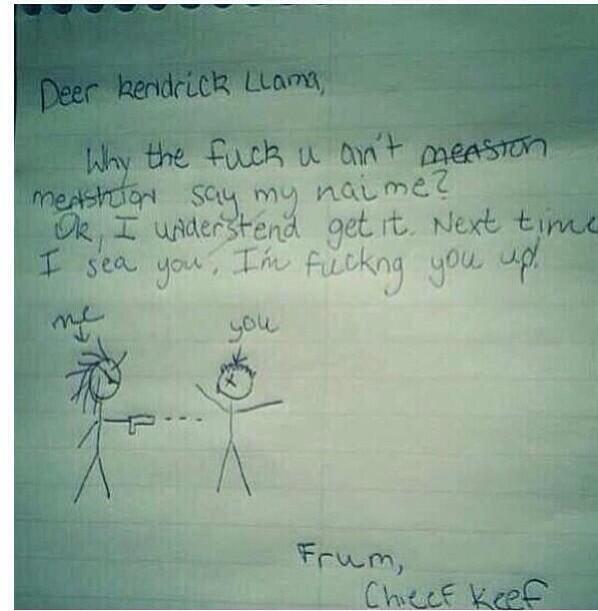 Deer kendrick Llama,
Why the fuck u ain't meastion
meashtion say my naime?
Ok, I understend get it. Next time
I sea you, I'm fuckng you up!
me
you
Frum,
Chieef keef